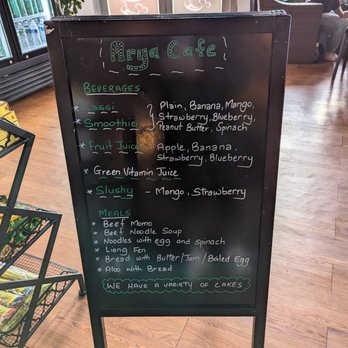 Arya Cafe
BEVERAGES
* Lassi } Plain, Banana, Mango,
* Smoothie Strawberry, Blueberry,
Peanut Butter, Spinach
* Fruit Juice Apple, Banana,
Strawberry, Blueberry
* Green Vitamin Juice
* Slushy - Mango, Strawberry
MEALS
* Beef Momo
* Beef Noodle Soup
* Noodles with egg and spinach
* Liang Fen
* Bread with Butter/Jam/Boiled Egg
* Aloo with Bread
WE HAVE A VARIETY OF CAKES